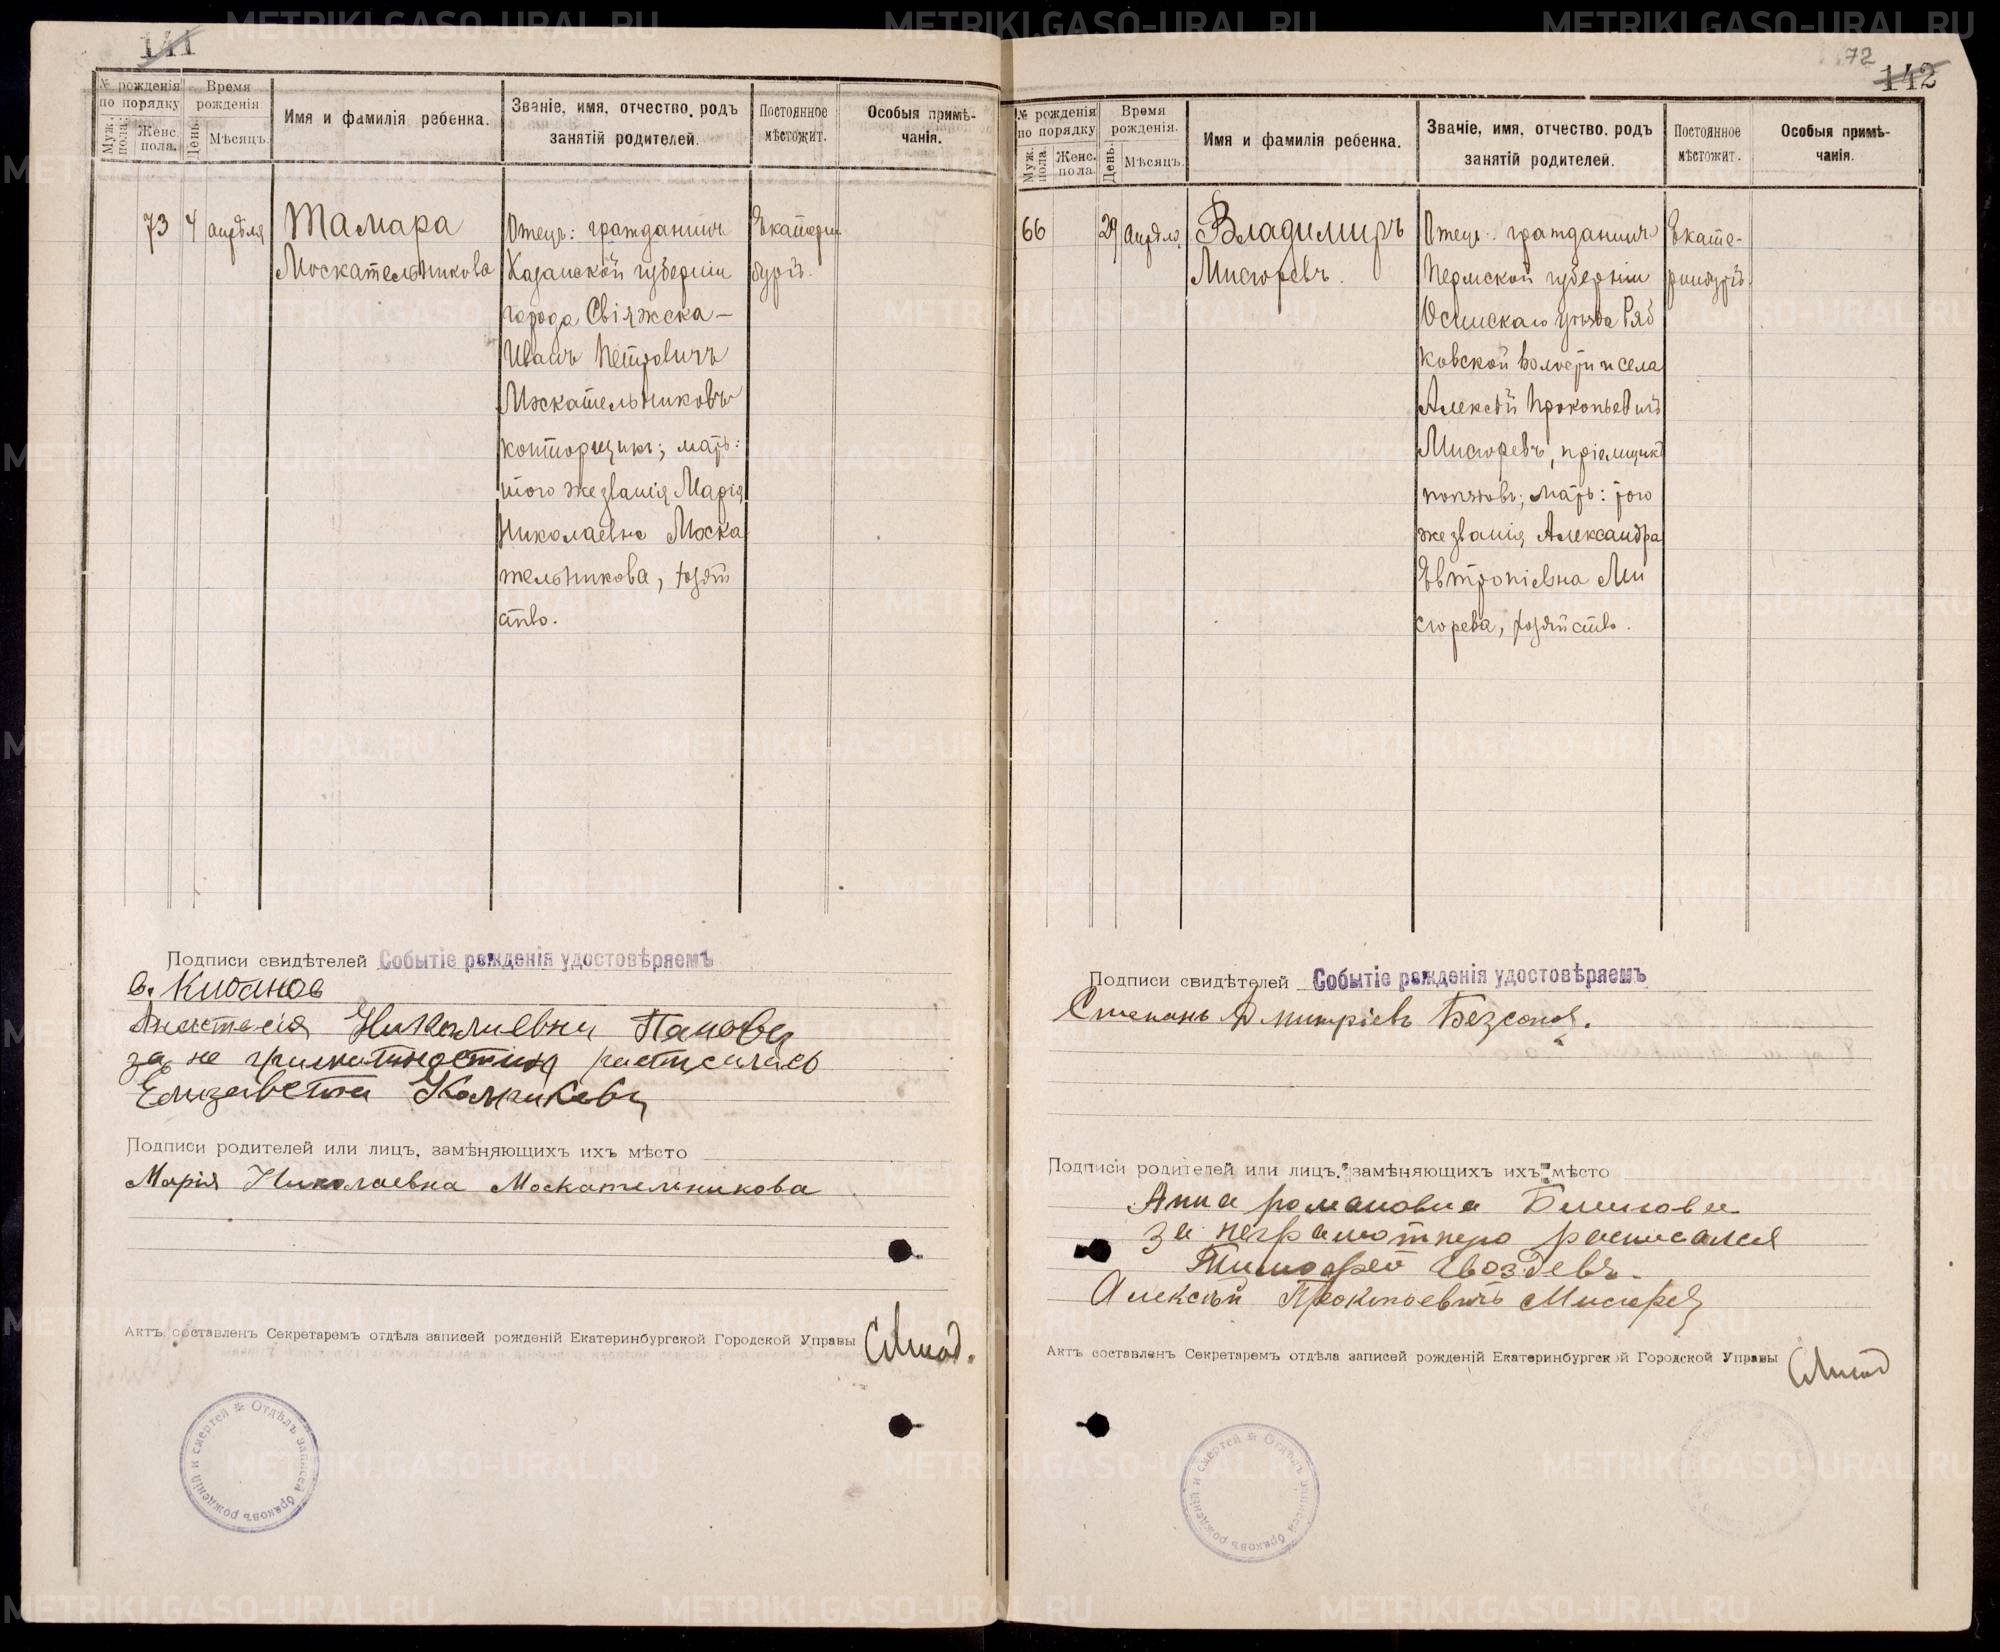 141
№ рожденія по порядку
Муж. пола.
Женс. пола.
Время рожденія
День.
Мѣсяцъ.
Имя и фамилія ребенка.
Званіе, имя, отчество, родъ занятій родителей.
Постоянное мѣстожит.
Особыя примѣчанія.
73
4
апрѣля
Тамара
Москательникова
Отецъ: гражданинъ
Казанской губерніи
города Свіяжска —
Иванъ Петровичъ
Москательниковъ
конторщикъ; мать:
того же званія Марія
Николаевна Моска
тельникова, хозяй
ство.
Екатерин
бургъ.
Подписи свидѣтелей Событіе рожденія удостовѣряемъ
Анастасія Николаевна Панова
за не грамотностью
Елизавета
Подписи родителей или лицъ, замѣняющихъ ихъ мѣсто
Марія Николаевна Москательникова
Актъ составленъ Секретаремъ отдѣла записей рожденій Екатеринбургской Городской Управы
Отдѣлъ записей браковъ рожденій и смертей
72
142
№ рожденія по порядку
Муж. пола
Женс. пола
Время рожденія.
День.
Мѣсяцъ.
Имя и фамилія ребенка.
Званіе, имя, отчество, родъ занятій родителей.
Постоянное мѣстожит.
Особыя примѣчанія.
66
29
апрѣля
Владимиръ
Мисюревъ.
Отецъ: гражданинъ
Пермской губерніи
Осинскаго уѣзда Ряб
ковской волости и села
Алексѣй Прокопьевичъ
Мисюревъ, пріемщикъ
попязовъ; мать: того
же званія Александра
Евтропіевна Ми
сюрева, хозяйство.
Екате-
ринбургъ.
Подписи свидѣтелей Событіе рожденія удостовѣряемъ
Степанъ Дмитріевъ Безсонов.
Подписи родителей или лицъ, замѣняющихъ ихъ мѣсто
Анна романовна
за неграмотную росписался
Тимофей Гвоздевъ.
Алексѣй Прокопьевичъ Мисюрев
Актъ составленъ Секретаремъ отдѣла записей рожденій Екатеринбургской Городской Управы
Отдѣлъ записей браковъ рожденій и смертей
METRIKI.GASO-URAL.RU